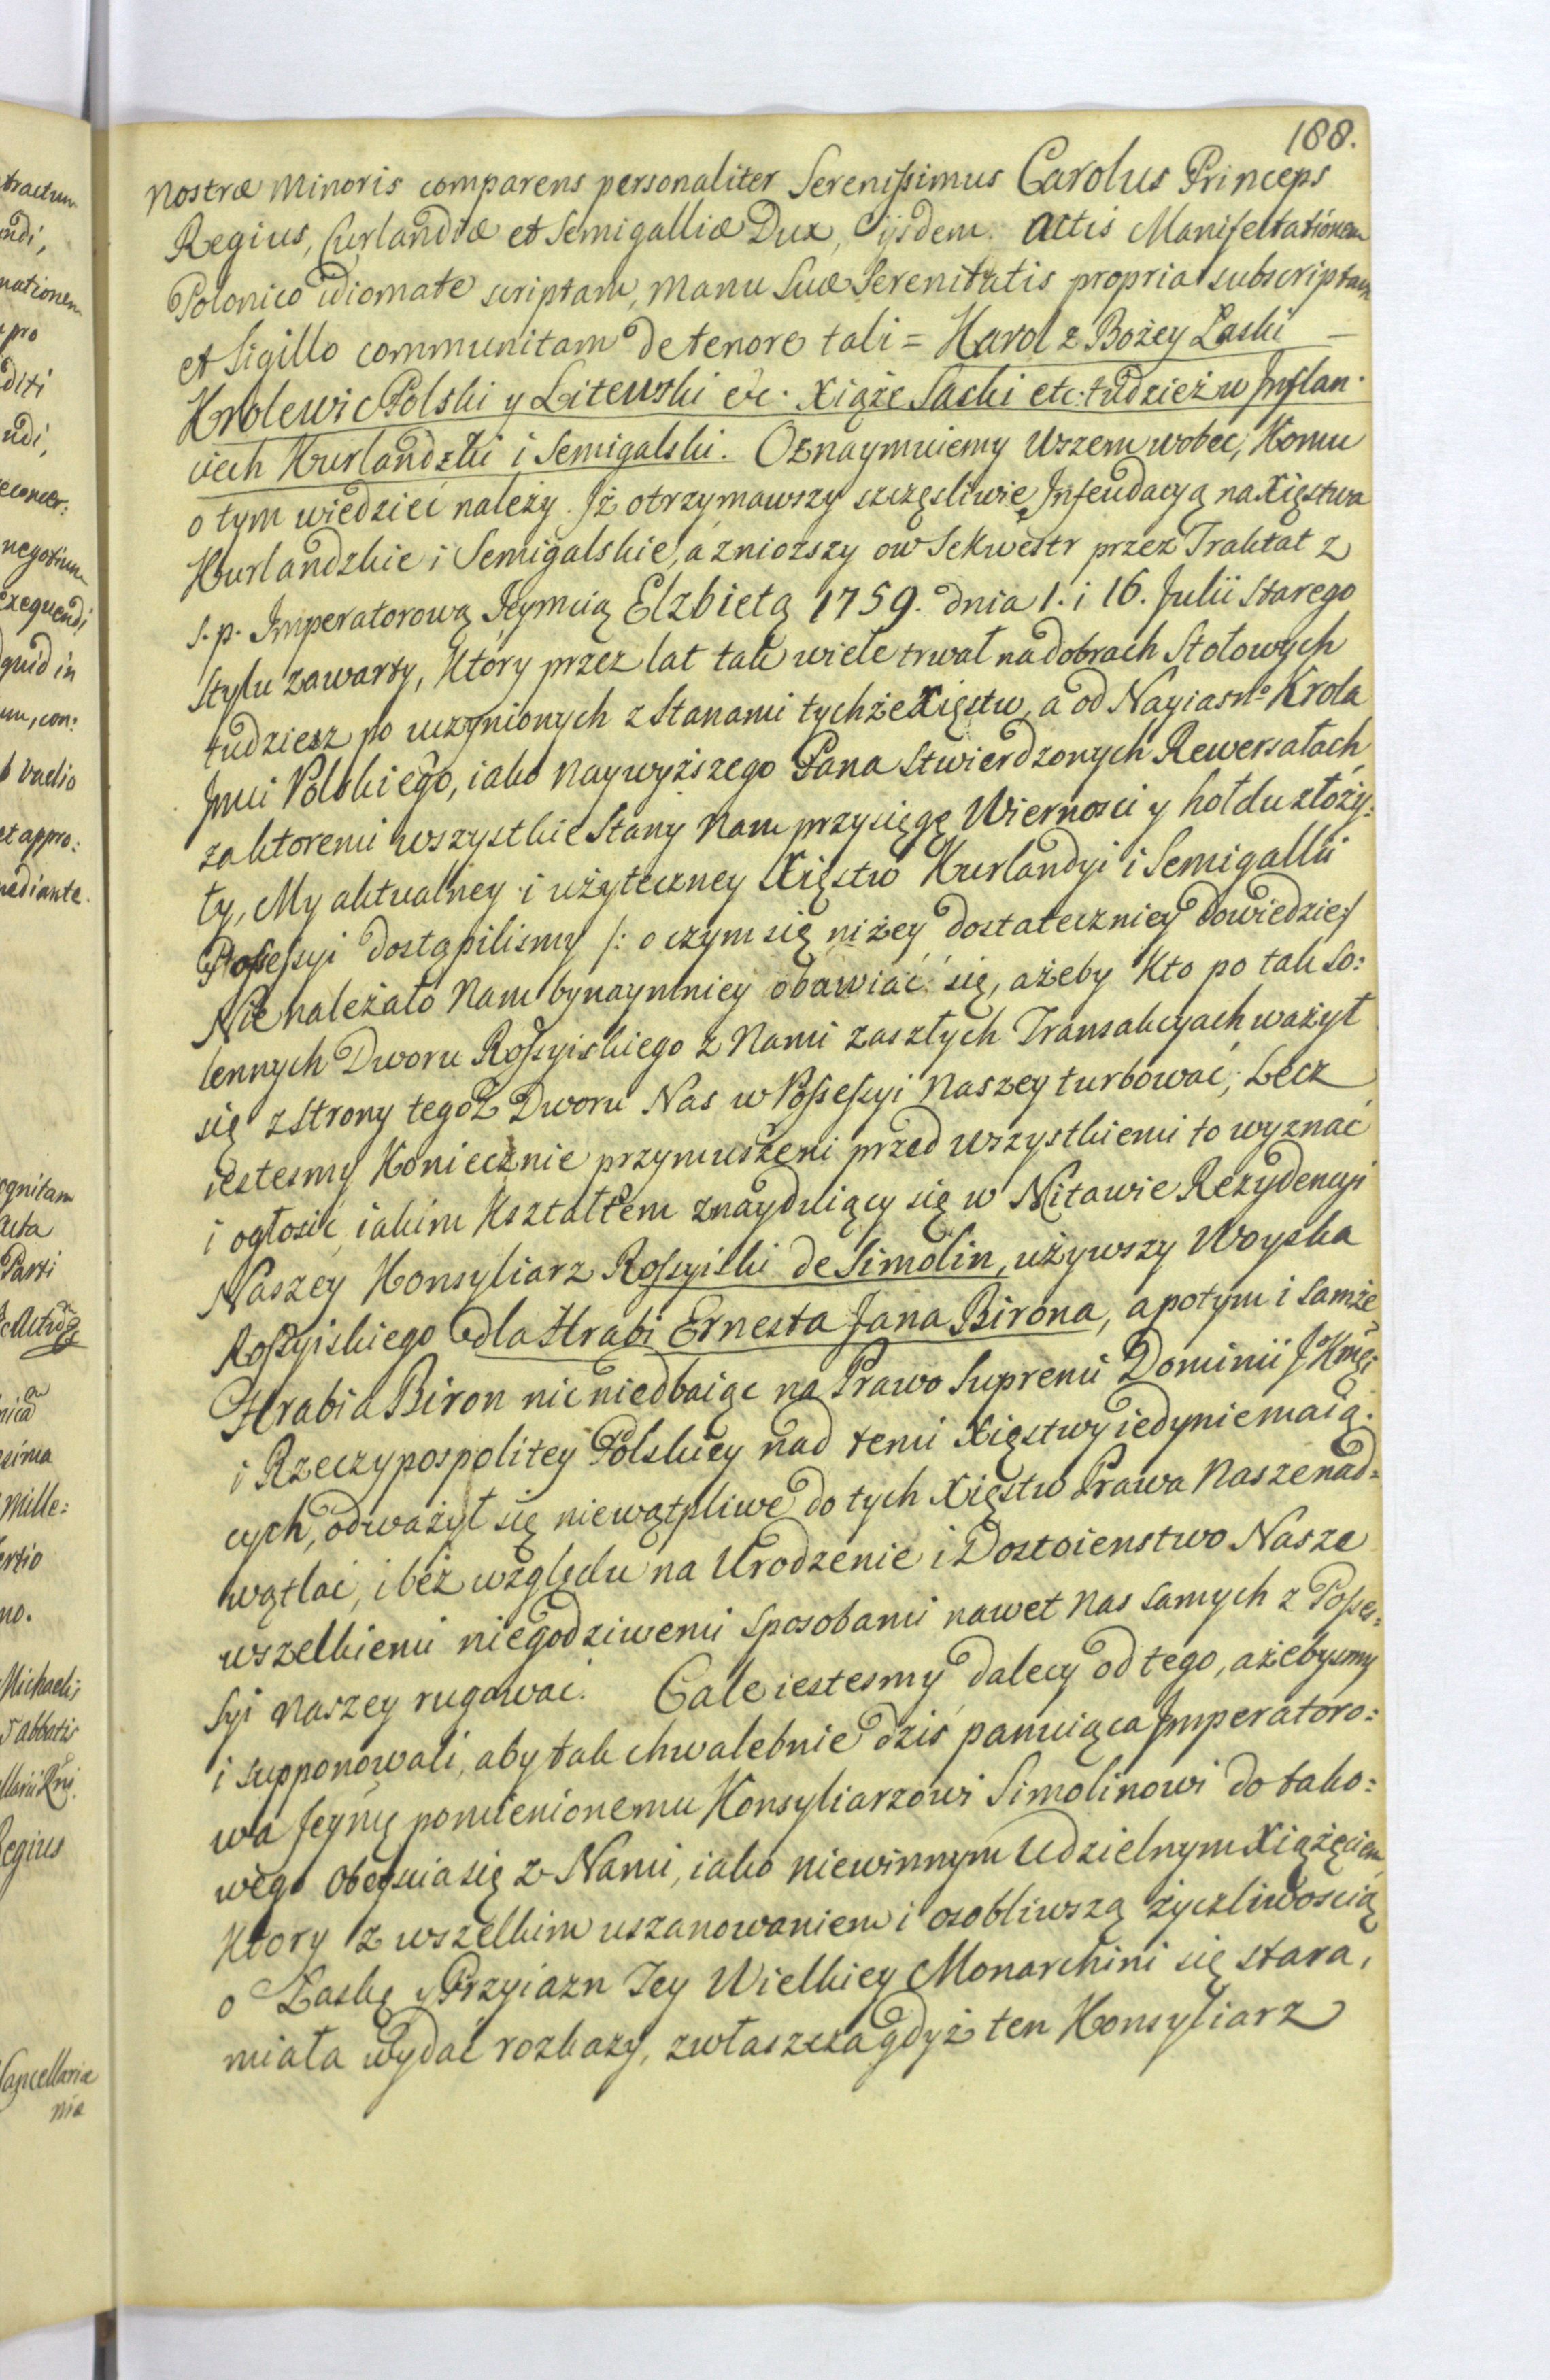 188.
Nostræ Minoris comparens personaliter Serenissimus Carolus Princeps
Regius, Curlandiæ et Semigalliæ Dux, ijsdem Actis Manifestationem
Polonico idiomate scriptam, manu Suæ Serenitatis propria subscriptam
et Sigillo communitam de tenore tali = Karol z Bożey Łaski —
Krolewic Polski y Litewski etc. Xiąże Saski etc. tudzież w Jnflan-
ciech Kurlandzki i Semigalski. Oznaymuiemy Wszem wobec, Komu
o tym wiedzieć należy. Jż otrzymawszy szczęsliwie Jnfeudacyą na Xięstwa
Kurlandzkie i Semigalskie, a zniozszy ow Sekwestr przez Traktat z
s. p. Imperatorową Jeymcią Elzbietą 1759. dnia 1. i 16. Julii Starego
Stylu zawarty, Który przez lat tak wiele trwał na dobrach Stołowych
tudziesz po uczynionych z Stanami tychże Xięstw, a od Nayiasno Krola
Jmci Polskiego, iako Naywyższego Pana Stwierdzonych Rewersałach,
za ktoremi wszystkie Stany Nam przysięgę Wiernosci y hołdu złoży:
ły, My aktualney i użyteczney Xięstw Kurlandyi i Semigallii
Possessyi dostąpilismy /: o czym się niżey dostateczniey dowiedzie:/
Nie należało Nam bynaymniey obawiać się, ażeby Kto po tak so:
lennych Dworu Rossyiskiego z Nami zaszłych Transakcyach ważył
się z strony tegoż Dworu Nas w Possessyi Naszey turbować; Lecz
iestesmy Koniecznie przymuszeni przed wszystkiemi to wyznać
i ogłosić, iakim Kształtem znayduiący się w Mitawie Rezydencyi
Naszey Konsyliarz Rossyiski de Simolin, używszy Woyska
Rossyiskiego dla Hrabi Ernesta Jana Birona, a potym i samże
Hrabia Biron nic niedbaiąc na Prawo Supremi Dominii JKmci
i Rzeczypospolitey Polskiey nad temi Xięstwy iedynie maią:
cych, odważył się niewątpliwe do tych Xięstw Prawa Nasze nad=
wątlać, i bez względu na Urodzenie i Dostoienstwo Nasze
wszelkiemi niegodziwemi sposobami nawet Nas samych z Posses=
syi Naszey rugować. Cale iestesmy dalecy od tego, ażebysmy
i supponowali, aby tak chwalebnie dziś panuiąca Jmperatoro:
wa Jeymć pomienionemu Konsyliarzowi Simolinowi do tako:
wego obeyscia się z Nami, iako niewinnym Udzielnym Xiążęciem,
Ktory z wszelkim uszanowaniem i osobliwszą życzliwoscią
o Łaskę y Przyiazn Tey Wielkiey Monarchini się stara,
miała wydać rozkazy, zwłaszcza gdyż ten Konsyliarz